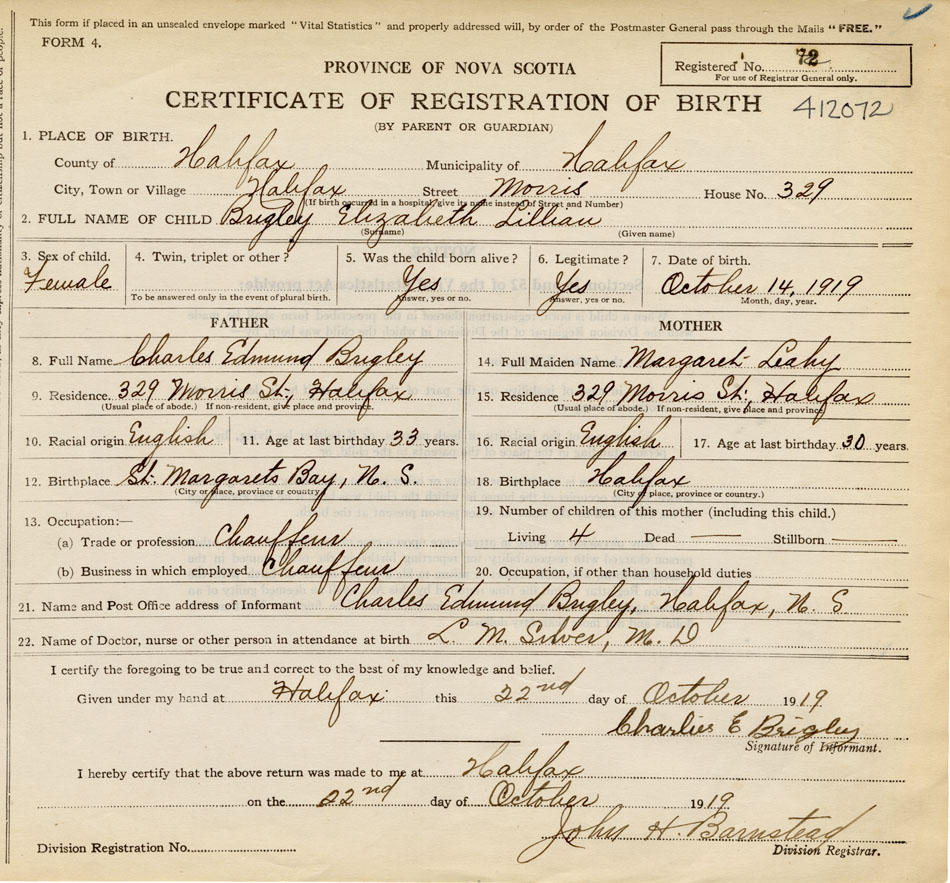 This form if placed in an unsealed envelope marked "Vital Statistics" and properly addressed will, by order of the Postmaster General pass through the Mails "FREE."
FORM 4.
Registered No. 72
For use of Registrar General only.
PROVINCE OF NOVA SCOTIA
CERTIFICATE OF REGISTRATION OF BIRTH 412072
(BY PARENT OR GUARDIAN)
1. PLACE OF BIRTH.
County of Halifax Municipality of Halifax
City, Town or Village Halifax Street Morris House No. 329
(If birth occurred in a hospital, give its name instead of Street and Number)
2. FULL NAME OF CHILD Brigley Elizabeth Lillian
(Surname) (Given name)
3. Sex of child. 4. Twin, triplet or other? 5. Was the child born alive? 6. Legitimate? 7. Date of birth.
Female Yes Yes October 14, 1919
To be answered only in the event of plural birth. Answer, yes or no. Answer, yes or no. Month, day, year.
FATHER
8. Full Name Charles Edmund Brigley
9. Residence. 329 Morris St., Halifax
(Usual place of abode.) If non-resident, give place and province.
10. Racial origin English 11. Age at last birthday 33 years.
12. Birthplace St. Margarets Bay, N. S.
(City or place, province or country)
13. Occupation:—
(a) Trade or profession Chauffeur
(b) Business in which employed Chauffeur
MOTHER
14. Full Maiden Name Margaret Leahy
15. Residence 329 Morris St., Halifax
(Usual place of abode.) If non-resident, give place and province
16. Racial origin English 17. Age at last birthday 30 years.
18. Birthplace Halifax
(City or place, province or country.)
19. Number of children of this mother (including this child.)
Living 4 Dead — Stillborn —
20. Occupation, if other than household duties
21. Name and Post Office address of Informant Charles Edmund Brigley, Halifax, N. S
22. Name of Doctor, nurse or other person in attendance at birth L. M. Silver, M. D
I certify the foregoing to be true and correct to the best of my knowledge and belief.
Given under my hand at Halifax this 22nd day of October 1919
Charlies E Brigley
Signature of Informant.
I hereby certify that the above return was made to me at Halifax
on the 22nd day of October 1919
John H. Barnstead
Division Registration No. Division Registrar.